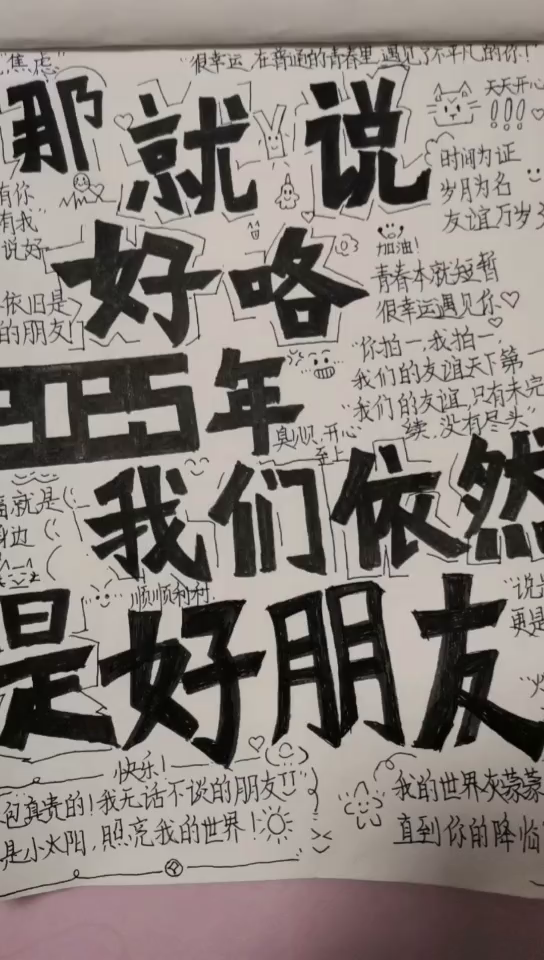 焦虑
"很幸运,在普通的青春里,遇见了不平凡的你!"
那就说
天天开心
!!!
时间为证
岁月为名
友谊万岁
有你
有我
说好
好咯
加油!
青春本就短暂
很幸运遇见你♡
依旧是
的朋友!
"你拍一,我拍一,
我们的友谊天下第一
"我们的友谊,只有未完
续,没有尽头"
2025年
开心
至上
我们依然
就是
身边
顺顺利利
是好朋友
"说
更是
快乐!
真贵的!我无话不谈的朋友
是小太阳,照亮我的世界!
我的世界灰蒙蒙
直到你的降临